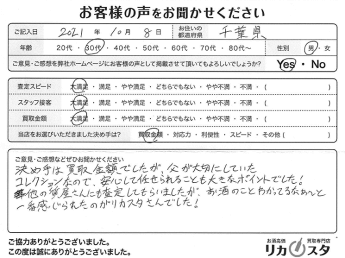 お客様の声をお聞かせください
ご記入日 2021年 10月 8日 お住いの都道府県 千葉県
年齢 20代・30代・40代・50代・60代・70代・80代〜 性別 男・女
ご意見・ご感想を弊社ホームページにお客様の声として掲載させて頂いてもよろしいでしょうか? Yes・No
査定スピード 大満足・満足・やや満足・どちらでもない・やや不満・不満・( )
スタッフ接客 大満足・満足・やや満足・どちらでもない・やや不満・不満・( )
買取金額 大満足・満足・やや満足・どちらでもない・やや不満・不満・( )
当店をお選びいただきました決め手は? 買取金額・対応力・利便性・スピード・その他( )
ご意見・ご感想などぜひお聞かせください
決め手は買取金額でしたが、父が大切にしていた
コレクションなので、安心して任せられることも大きなポイントでした!
他の業者さんにも査定してもらいましたが、お酒のことわかってるなぁ〜と
一番感じられたのがリカスタさんでした!
ご協力ありがとうございました。
この度は誠にありがとうございました。
お酒高価 買取専門店
リカスタ